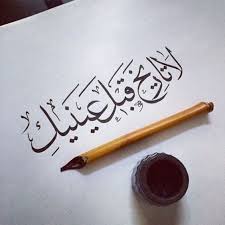 لا تاريخ قبل عينيك